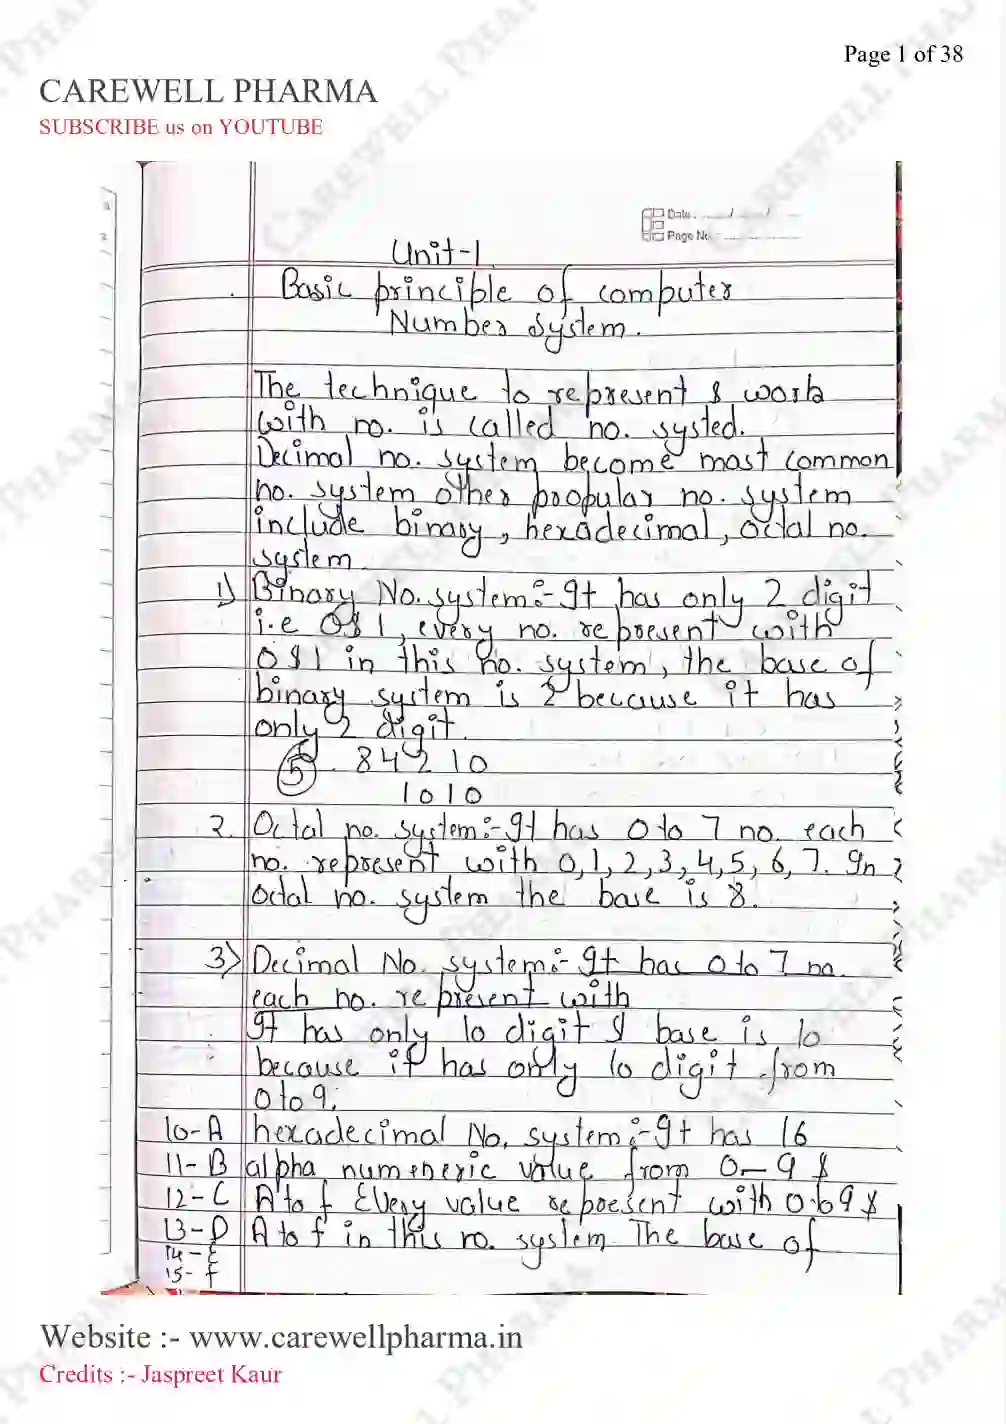 Page 1 of 38
CAREWELL PHARMA
SUBSCRIBE us on YOUTUBE
Date
Page No.
Unit-1
Basic principle of computer
Number system.
The technique to represent & work
with no. is called no. systed.
Decimal no. system become most common
no. system other poopular no. system
include binary, hexadecimal, octal no.
system
1) Binary No. system:- It has only 2 digit
i.e 0 & 1, every no. represent with
0 & 1 in this no. system, the base of
binary system is 2 because it has
only 2 digit.
5 8 4 2 1 0
1 0 1 0
2. Octal no. system:- It has 0 to 7 no. each
no. represent with 0, 1, 2, 3, 4, 5, 6, 7. In
octal no. system the base is 8.
3) Decimal No. system:- It has 0 to 7 no.
each no. represent with
It has only 10 digit & base is 10
because it has only 10 digit from
0 to 9.
10-A hexadecimal No. system:- It has 16
11-B alpha numeneric value from 0-9 &
12-C A to f Every value represent with 0 to 9 &
13-D A to f in this no. system The base of
14-E
15-f
Website :- www.carewellpharma.in
Credits :- Jaspreet Kaur